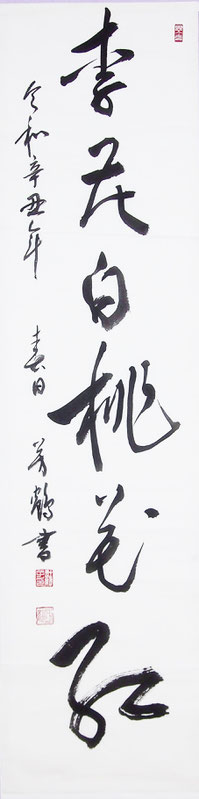 李花白桃花紅
令和辛丑年 春日 芳鶴書